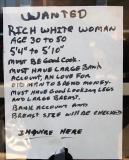 WANTED
RICH WHITE WOMAN
AGE 30 TO 50
5'4" TO 5'10"
MUST BE GOOD COOK.
MUST HAVE LARGE BANK
ACCOUNT, AN LOVE FOR
OLD MAN TO SPEND MONEY.
MUST HAVE GOOD LOOKING LEGS
AND LARGE BREAST.
BANK ACCOUNT AND
BREAST SIZE WILL BE CHECKED
INQUIRE HERE